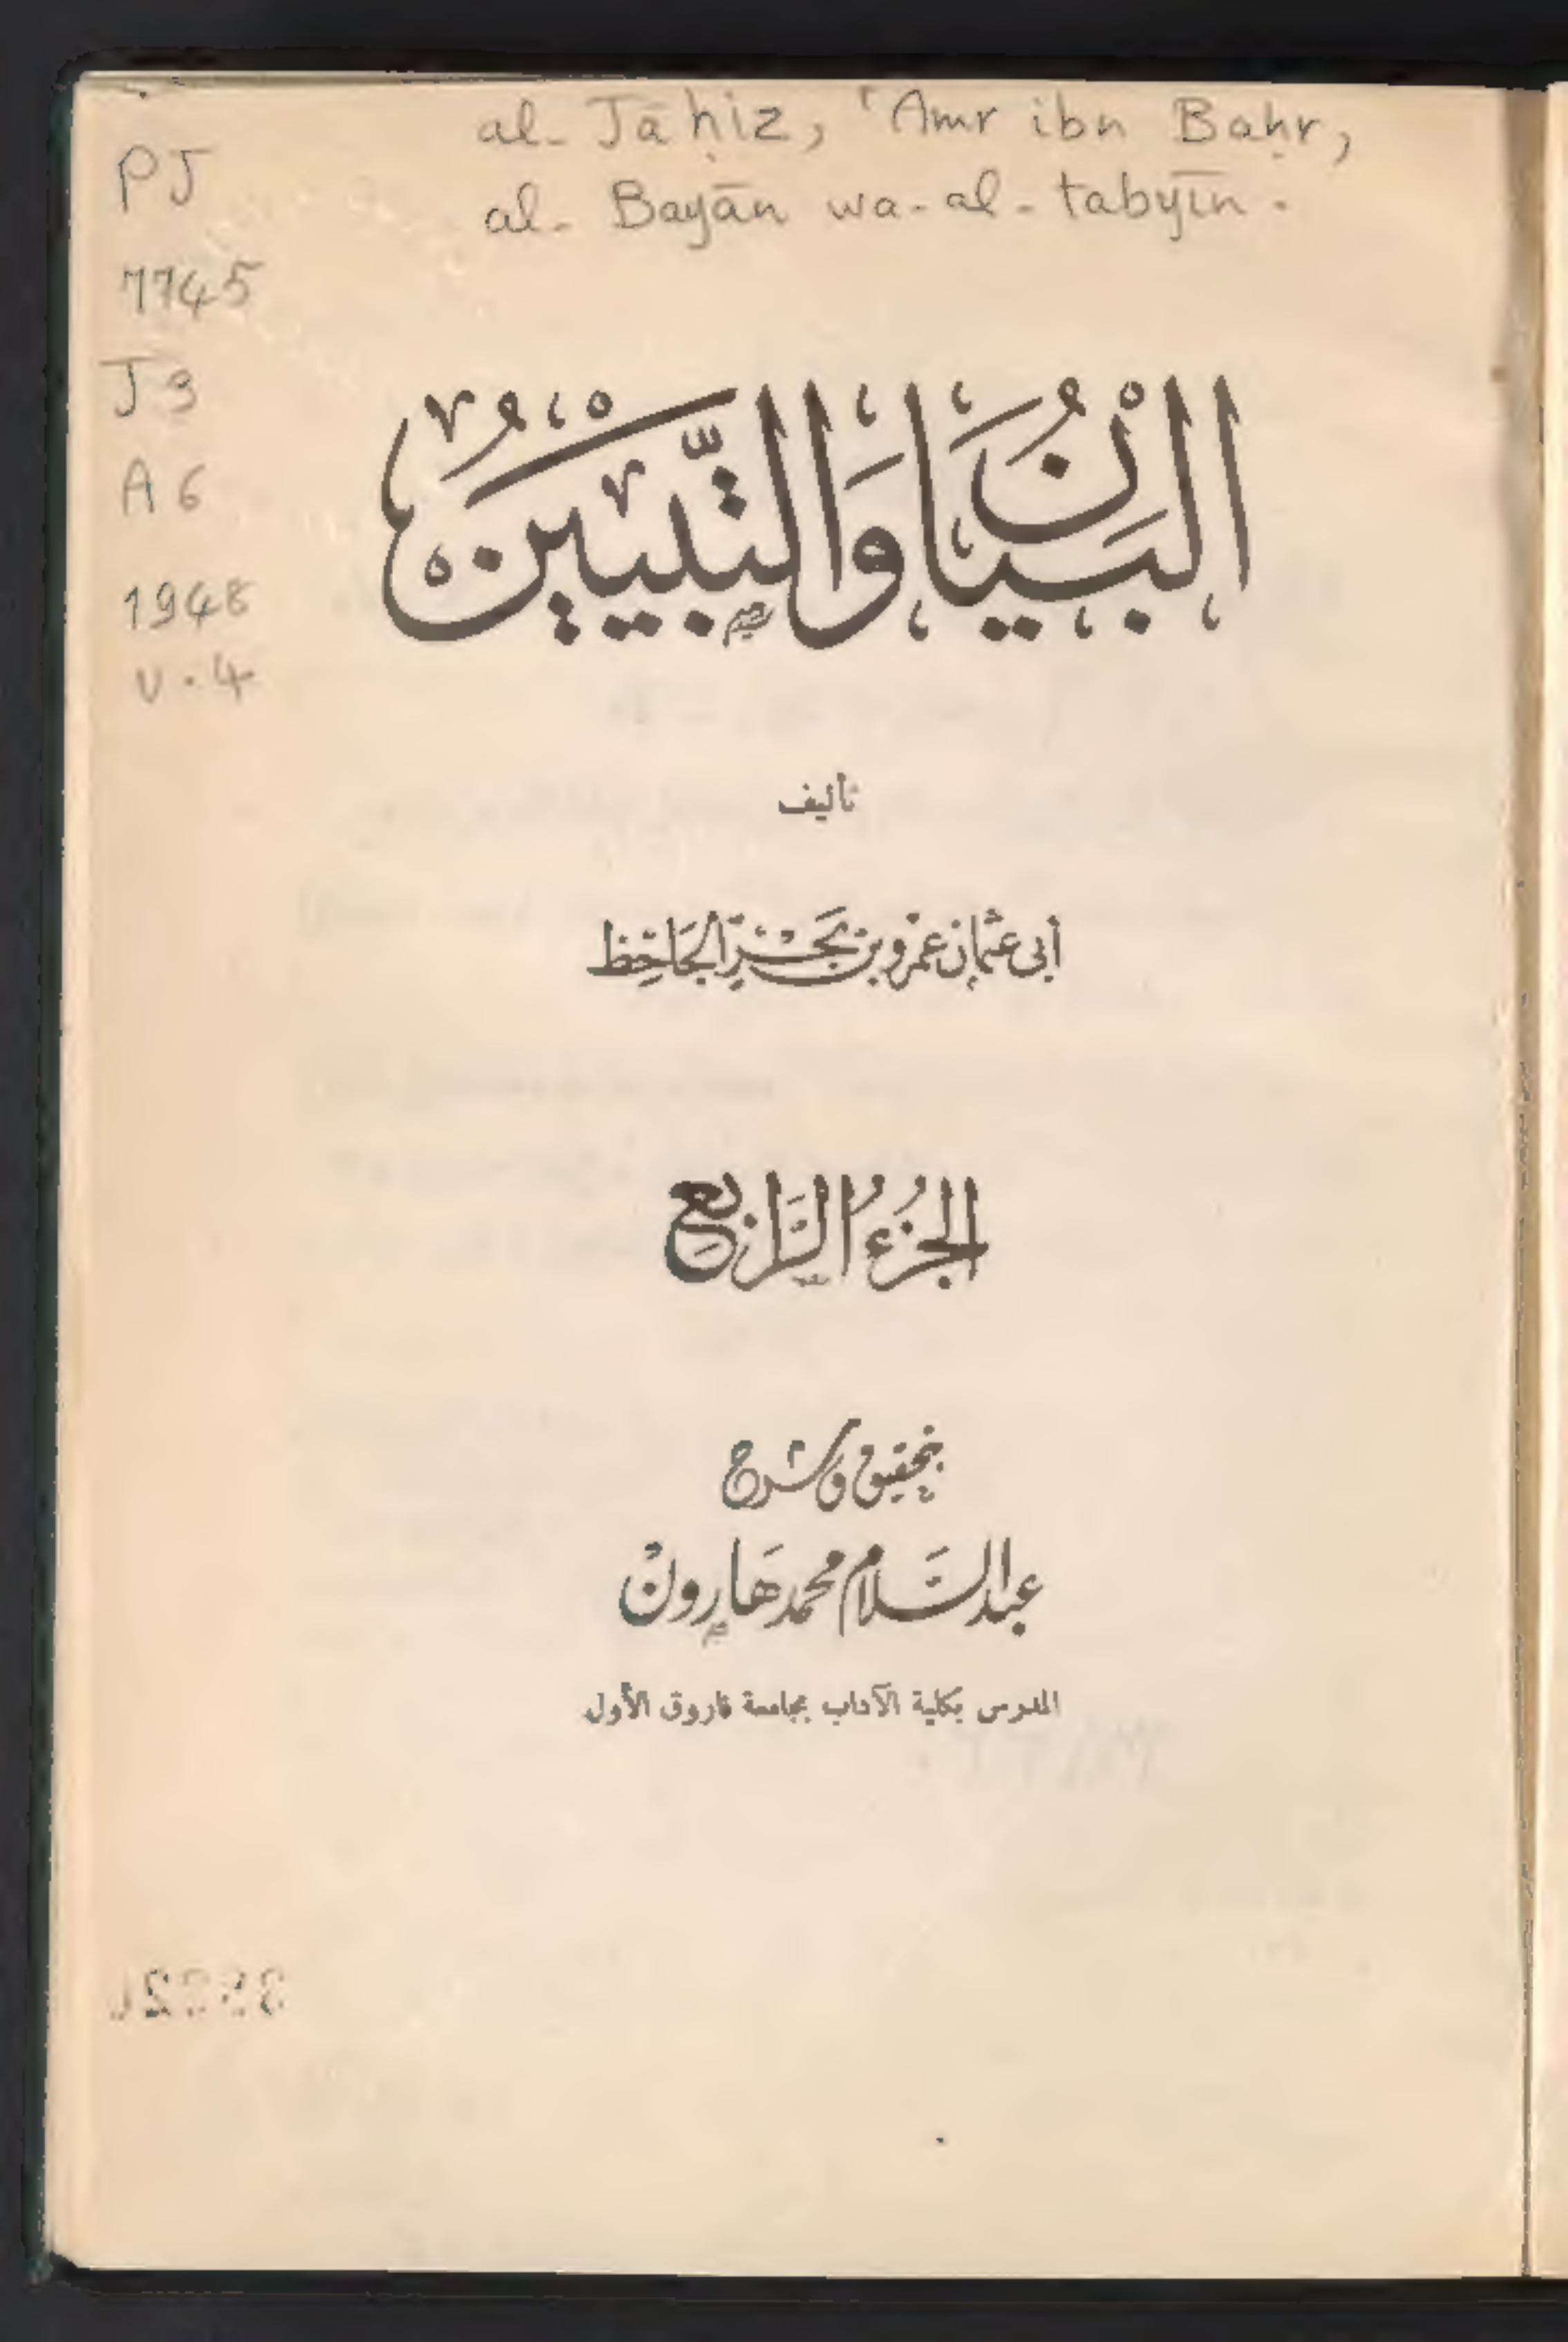 al-Jāḥiz, 'Amr ibn Baḥr,
al-Bayān wa-al-tabyīn.
PJ
7745
J3
A6
1948
v.4
البَيَانُ وَالتَّبْيِينُ
تأليف
أبى عثمان عمرو بن بحر الجاحظ
الجزء الرابع
بتحقيق وشرح
عبد السلام محمد هارون
المدرس بكلية الآداب بجامعة فاروق الأول